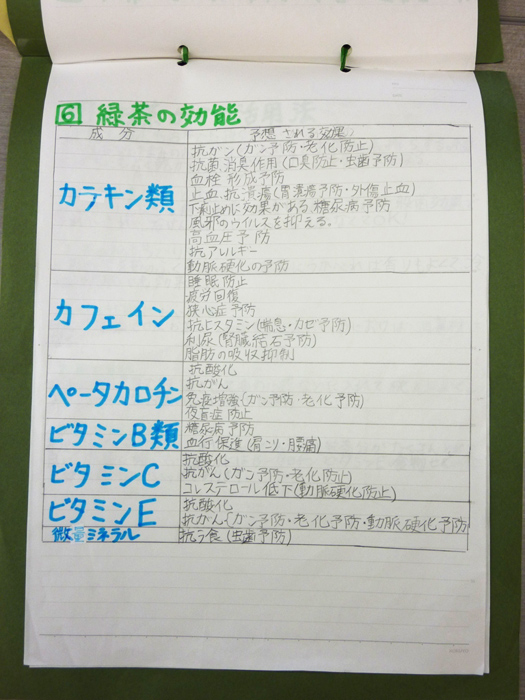 6 緑茶の効能
成分 予想される効能
カテキン類
抗ガン(ガン予防・老化防止)
抗菌消臭作用(口臭防止・虫歯予防)
血栓形成予防
止血、抗潰瘍(胃潰瘍予防・外傷止血)
下痢止めに効果がある、糖尿病予防
風邪のウイルスを抑える。
高血圧予防
抗アレルギー
動脈硬化の予防
カフェイン
睡眠防止
疲労回復
狭心症予防
抗ヒスタミン(喘息・カゼ予防)
利尿(腎臓結石予防)
脂肪の吸収抑制
ベータカロチン
抗酸化
抗がん
免疫増強(ガン予防・老化予防)
夜盲症防止
ビタミンB類
糖尿病予防
血行促進(肩こり・腰痛)
ビタミンC
抗酸化
抗がん(ガン予防・老化防止)
コレステロール低下(動脈硬化防止)
ビタミンE
抗酸化
抗がん(ガン予防・老化予防・動脈硬化予防
微量ミネラル
抗う食(虫歯予防)